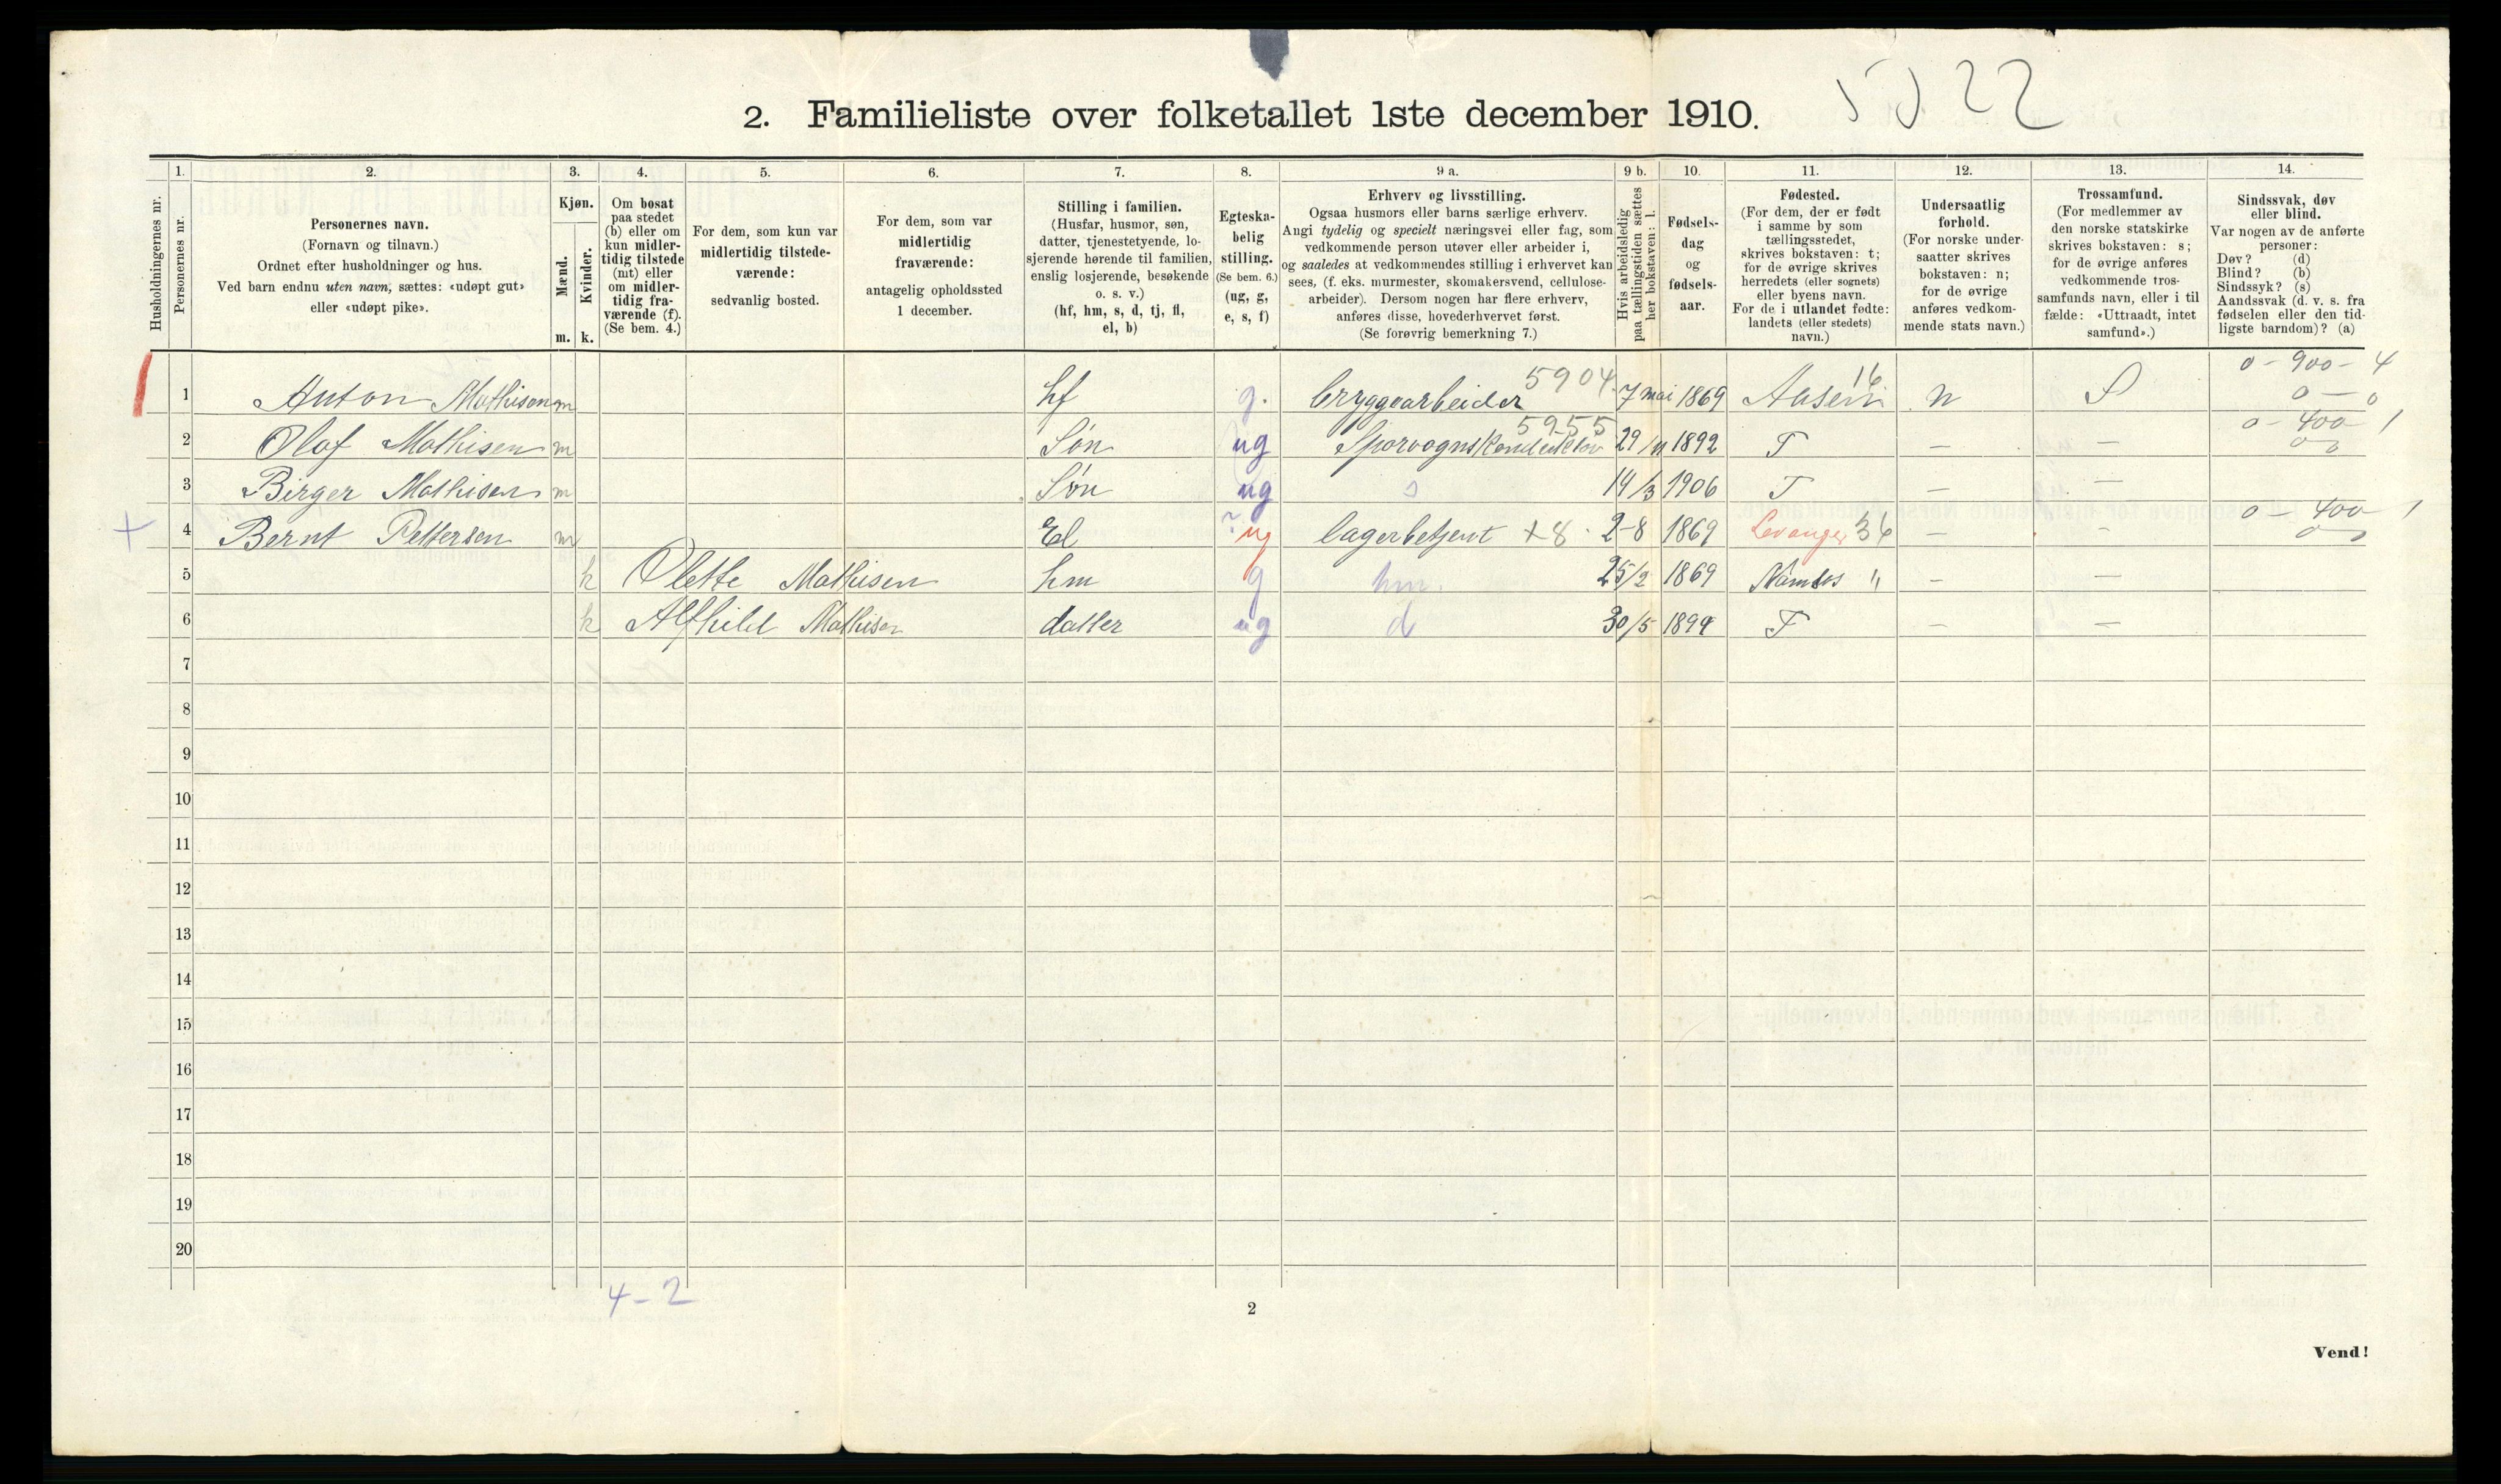 2. Familieliste over folketallet 1ste december 1910.
5522
1. 2. 3. 4. 5. 6. 7. 8. 9 a. 9 b. 10. 11. 12. 13. 14.
Husholdningernes nr.
Personernes nr.
Personernes navn.
(Fornavn og tilnavn.)
Ordnet efter husholdninger og hus.
Ved barn endnu uten navn, sættes: «udøpt gut»
eller «udøpt pike».
Kjøn.
Mænd.
Kvinder.
m. k.
Om bosat
paa stedet
(b) eller om
kun midler-
tidig tilstede
(mt) eller
om midler-
tidig fra-
værende (f).
(Se bem. 4.)
For dem, som kun var
midlertidig tilstede-
værende:
sedvanlig bosted.
For dem, som var
midlertidig
fraværende:
antagelig opholdssted
1 december.
Stilling i familien.
(Husfar, husmor, søn,
datter, tjenestetyende, lo-
sjerende hørende til familien,
enslig losjerende, besøkende
o. s. v.)
(hf, hm, s, d, tj, fl,
el, b)
Egteska-
belig
stilling.
(Se bem. 6.)
(ug, g,
e, s, f)
Erhverv og livsstilling.
Ogsaa husmors eller barns særlige erhverv.
Angi tydelig og specielt næringsvei eller fag, som
vedkommende person utøver eller arbeider i,
og saaledes at vedkommendes stilling i erhvervet kan
sees, (f. eks. murmester, skomakersvend, cellulose-
arbeider). Dersom nogen har flere erhverv,
anføres disse, hovederhvervet først.
(Se forøvrig bemerkning 7.)
Hvis arbeidsledig
paa tællingstiden sættes
her bokstaven: l.
Fødsels-
dag
og
fødsels-
aar.
Fødested.
(For dem, der er født
i samme by som
tællingsstedet,
skrives bokstaven: t;
for de øvrige skrives
herredets (eller sognets)
eller byens navn.
For de i utlandet fødte:
landets (eller stedets)
navn.)
Undersaatlig
forhold.
(For norske under-
saatter skrives
bokstaven: n;
for de øvrige
anføres vedkom-
mende stats navn.)
Trossamfund.
(For medlemmer av
den norske statskirke
skrives bokstaven: s;
for de øvrige anføres
vedkommende tros-
samfunds navn, eller i til
fælde: «Uttraadt, intet
samfund».)
Sindssvak, døv
eller blind.
Var nogen av de anførte
personer:
Døv? (d)
Blind? (b)
Sindssyk? (s)
Aandssvak (d. v. s. fra
fødselen eller den tid-
ligste barndom)? (a)
0 - 900 - 4
5904 16
1 Anton Mathisen m hf g. bryggearbeider 7 mai 1869 Aasen n S 0 - 0
5955 0 - 400 1
2 Olaf Mathisen m Søn ug Sporvognskonduktør 29/11 1892 T — —
3 Birger Mathisen m Søn ug s 14/3 1906 T — —
0 - 400 1
+ 4 Bernt Pettersen m El ? ug lagerbetjent +8 2-8 1869 Levanger 36 — -
5 k Olette Mathisen hm g hm. 25/2 1869 Namsos " — —
6 k Alfhild Mathisen datter ug d 30/5 1899 T — —
7
8
9
10
11
12
13
14
15
16
17
18
19
20
4 - 2
2
Vend!